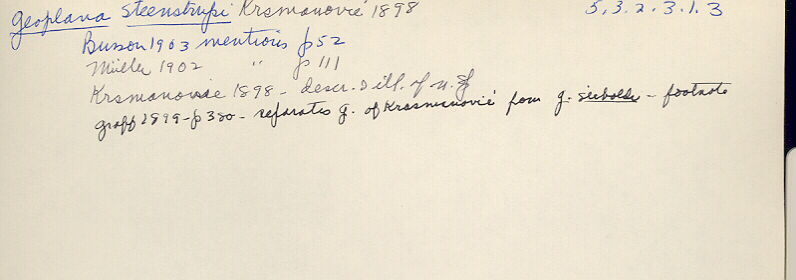 Geoplana Steenstrupi Krsmanović 1898 5.3.2.3.1.3
Busson 1903 mentions p 52
Müller 1902 " p 111
Krsmanovie 1898 - descr. & ill. of n. sp
Graff 1899 - p 380 - separates G. of Krasmanović from G. sieboldi - footnote